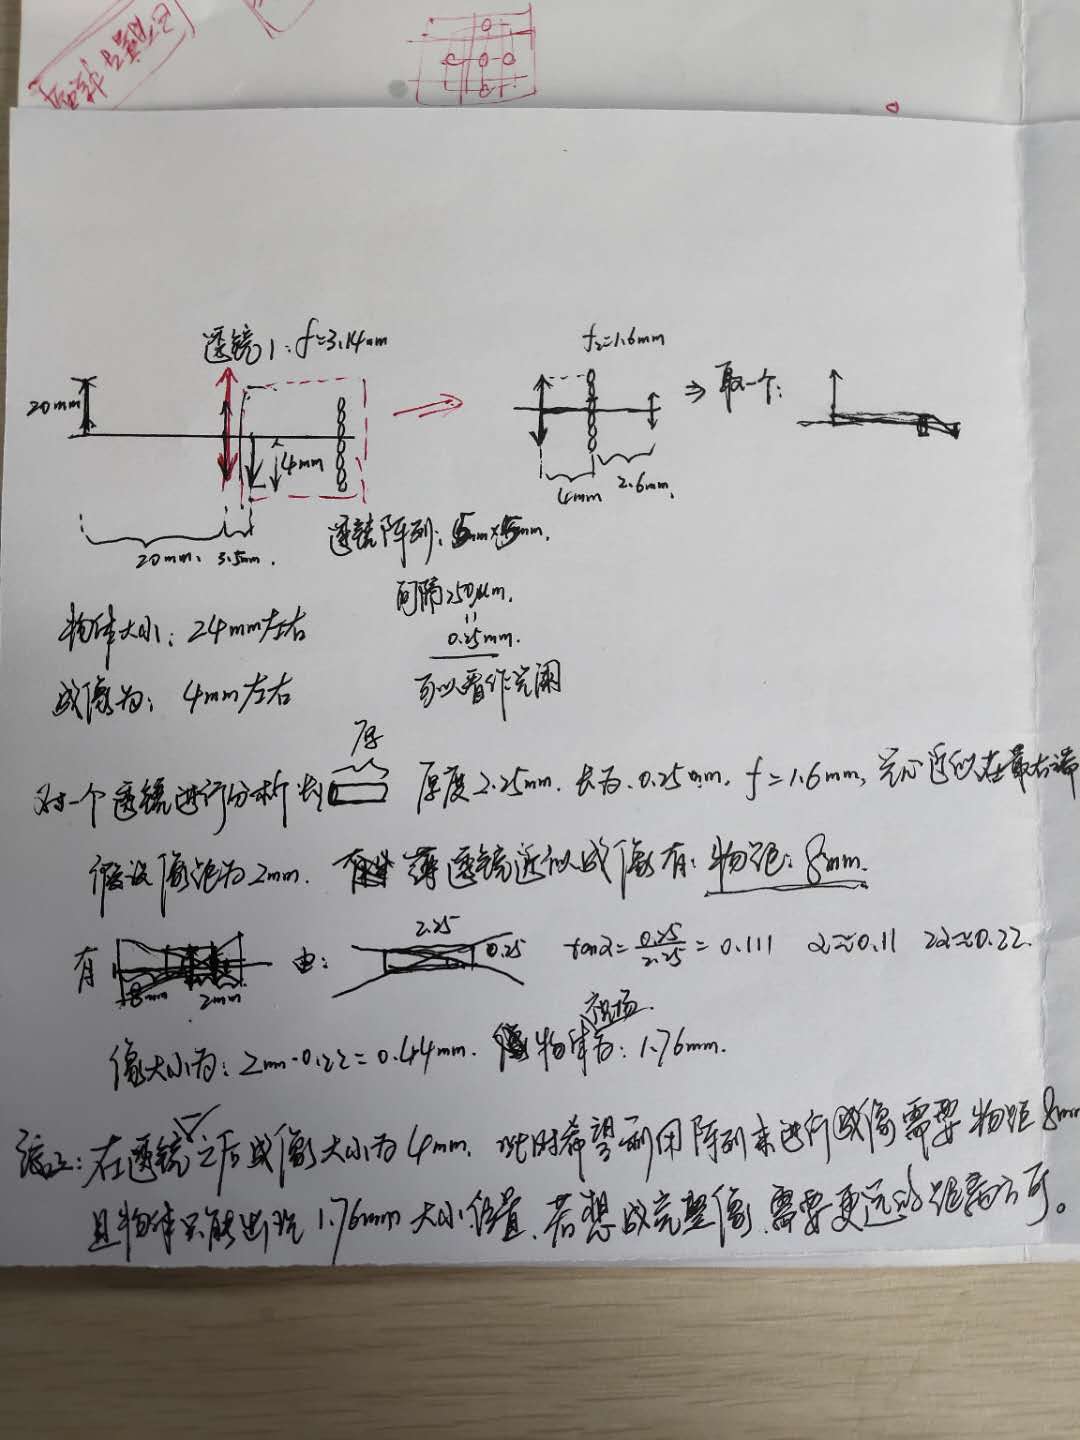 透镜1:f=3.14mm
f₂=1.6mm
20mm
⇒取一个:
4mm
4mm 2.6mm
20mm. 3.5mm.
透镜阵列:5mm×5mm.
间隔250μm.
=
0.25mm.
可以看作完闭
物体大小:24mm左右
成像为:4mm左右
厚
对一个透镜进行分析 长 厚度2.25mm. 长为.0.25mm. f=1.6mm, 光心近似在最右端
假设像距为2mm. 薄透镜近似成像有:物距:8mm.
有 8mm 2mm 由: 2.25 0.25 tanα=0.25/2.25=0.111 α≈0.11 2α≈0.22.
像大小为:2mm·0.22=0.44mm. 物体 视场 为:1.76mm.
综上:在透镜之后成像大小为4mm. 此时希望利用阵列来进行成像需要物距8mm
且物体只能出现1.76mm大小位置. 若想成完整像.需要更远的距离方可。